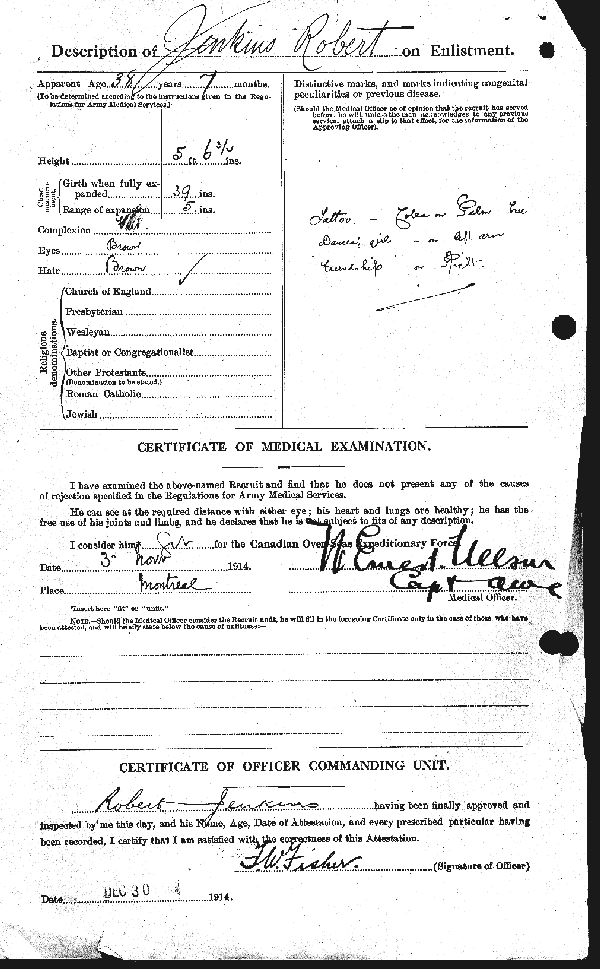 Description of Jenkins Robert on Enlistment.
Apparent Age 38 years 7 months.
(To be determined according to the instructions given in the Regulations for Army Medical Services.)
Height 5 ft. 6 3/4 ins.
Chest measurement.
Girth when fully expanded 39 ins.
Range of expansion 5 ins.
Complexion
Eyes Brown
Hair Brown
Religious denominations.
Church of England
Presbyterian
Wesleyan
Baptist or Congregationalist
Other Protestants
(Denomination to be stated.)
Roman Catholic
Jewish
Distinctive marks, and marks indicating congenital
peculiarities or previous disease.
(Should the Medical Officer be of opinion that the recruit has served
before, he will, unless the man acknowledges to any previous
service, attach a slip to that effect, for the information of the
Approving Officer).
Tattoo – on Palm tree
Dancing girl – on left arm
friendship on Right
CERTIFICATE OF MEDICAL EXAMINATION.
I have examined the above-named Recruit and find that he does not present any of the causes
of rejection specified in the Regulations for Army Medical Services.
He can see at the required distance with either eye; his heart and lungs are healthy; he has the
free use of his joints and limbs, and he declares that he is not subject to fits of any description.
I consider him* fit for the Canadian Over-Seas Expeditionary Force.
Date 3 Nov 1914.
W Ernest Nelson
Place Montreal
Capt
Medical Officer.
*Insert here "fit" or "unfit."
NOTE.—Should the Medical Officer consider the Recruit unfit, he will fill in the foregoing Certificate only in the case of those who have
been attested, and will briefly state below the cause of unfitness:—
CERTIFICATE OF OFFICER COMMANDING UNIT.
Robert Jenkins having been finally approved and
inspected by me this day, and his Name, Age, Date of Attestation, and every prescribed particular having
been recorded, I certify that I am satisfied with the correctness of this Attestation.
F.W. Fisher. (Signature of Officer)
Date DEC 30 4 1914.